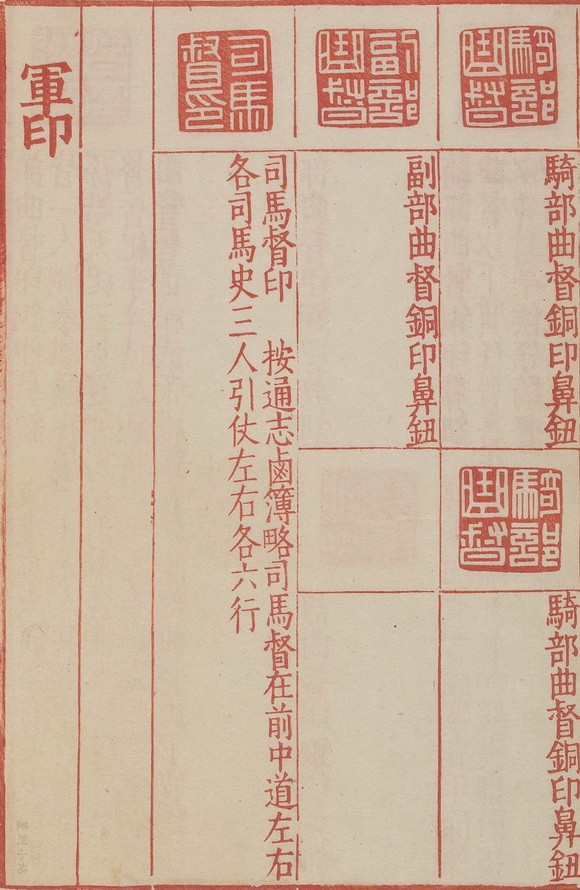 騎部曲督
騎部曲督銅印鼻鈕
騎部曲督
騎部曲督銅印鼻鈕
副部曲督
副部曲督銅印鼻鈕
司馬督印
司馬督印　按通志鹵簿略司馬督在前中道左右
各司馬史三人引仗左右各六行
軍印